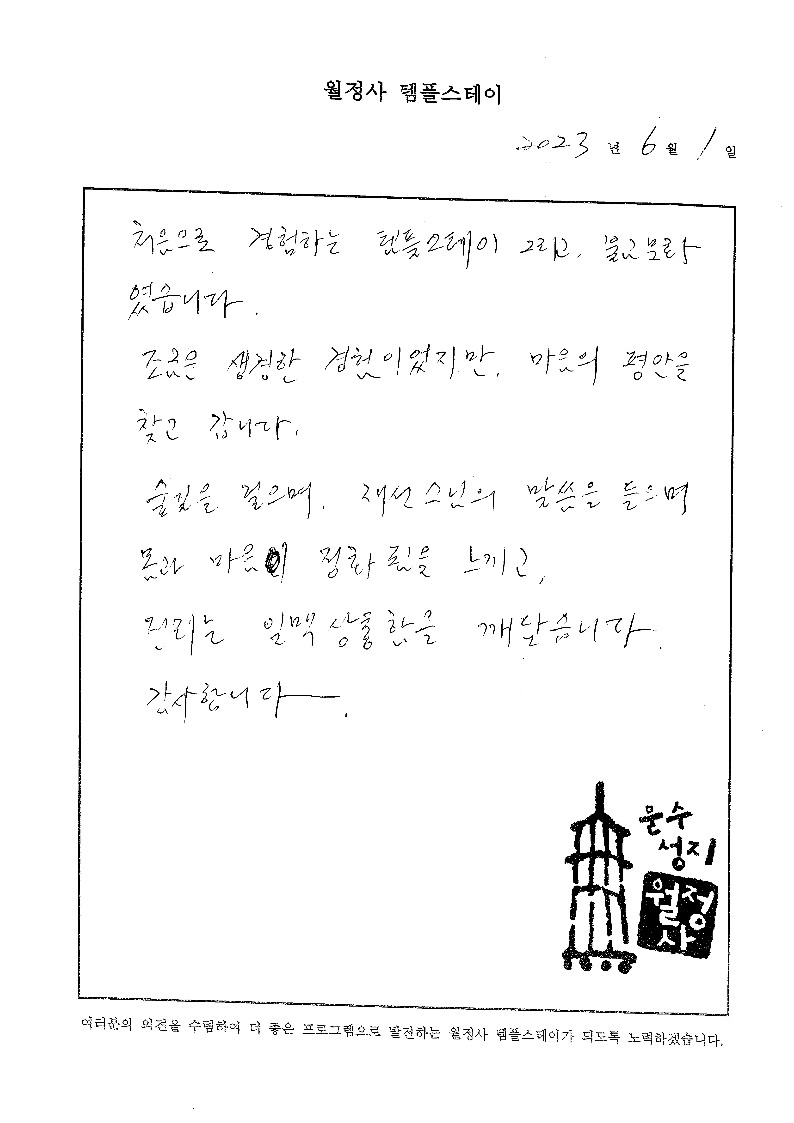 월정사 템플스테이
2023 년 6 월 1 일
처음으로 경험하는 템플스테이 그리고, 불교문화
였습니다.
조금은 생경한 경험이었지만, 마음의 평안을
찾고 갑니다.
숲길을 걸으며, 스님의 말씀을 들으며
몸과 마음이 정화됨을 느끼고,
진리는 일맥상통함을 깨닫습니다.
감사합니다.
문수
성지
월정
사
여러분의 의견을 수렴하여 더 좋은 프로그램으로 발전하는 월정사 템플스테이가 되도록 노력하겠습니다.